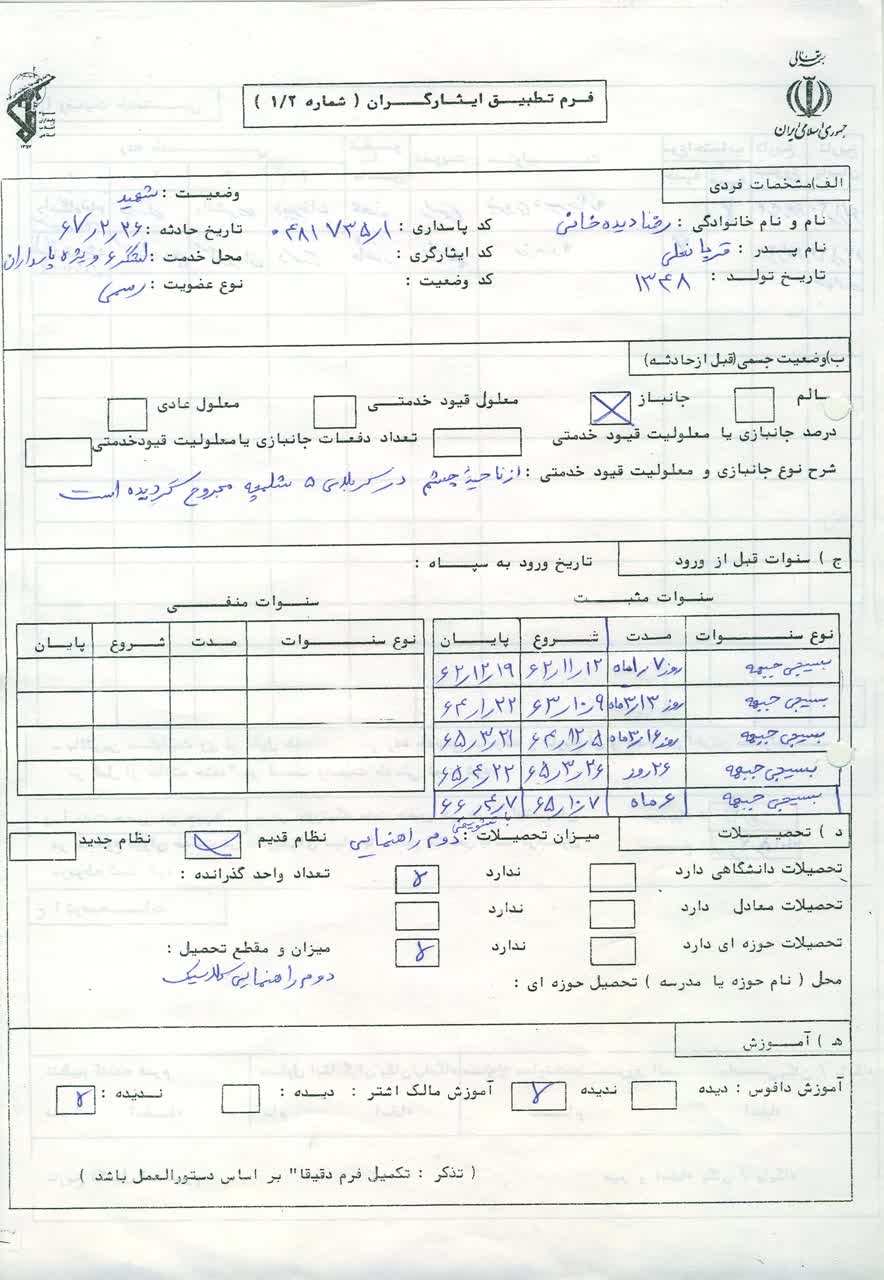 بسمه تعالی
جمهوری اسلامی ایران
فرم تطبیق ایثارگران ( شماره ۱/۲ )
الف)مشخصات فردی
وضعیت : شهید
نام و نام خانوادگی : رضا دیده خانی
کد پاسداری : ۰۴۸۱۷۳۵/۱
تاریخ حادثه : ۶۷/۲/۲۶
نام پدر : قربانعلی
کد ایثارگری :
محل خدمت : لشگر ۶ ویژه پاسداران
تاریخ تولد : ۱۳۴۸
کد وضعیت :
نوع عضویت : رسمی
ب)وضعیت جسمی(قبل ازحادثه)
سالم جانباز معلول قیود خدمتی معلول عادی
درصد جانبازی یا معلولیت قیود خدمتی تعداد دفعات جانبازی یامعلولیت قیودخدمتی
شرح نوع جانبازی و معلولیت قیود خدمتی : از ناحیهٔ چشم در کربلای ۵ شلمچه مجروح گردیده است
ج ) سنوات قبل از ورود تاریخ ورود به سپاه :
سنوات مثبت
سنوات منفی
نوع سنوات مدت شروع پایان
نوع سنوات مدت شروع پایان
بسیجی جبهه ۷روز/۱ماه ۶۲/۱۱/۱۲ ۶۲/۱۲/۱۹
بسیجی جبهه ۱۳روز/۳ماه ۶۳/۱۰/۹ ۶۴/۱/۲۲
بسیجی جبهه ۱۶روز/۳ماه ۶۴/۱۲/۵ ۶۵/۳/۲۱
بسیجی جبهه ۲۶روز ۶۵/۳/۲۶ ۶۵/۴/۲۲
بسیجی جبهه ۶ماه ۶۵/۱۰/۷ ۶۶/۴/۷
د ) تحصیلات میزان تحصیلات : دوم راهنمایی نظام قدیم نظام جدید
تحصیلات دانشگاهی دارد ندارد تعداد واحد گذرانده :
تحصیلات معادل دارد ندارد
تحصیلات حوزه ای دارد ندارد میزان و مقطع تحصیل :
دوم راهنمایی کلاسیک
محل ( نام حوزه یا مدرسه ) تحصیل حوزه ای :
هـ ) آموزش
آموزش دافوس : دیده ندیده آموزش مالک اشتر : دیده : ندیده :
( تذکر : تکمیل فرم دقیقا" بر اساس دستورالعمل باشد )